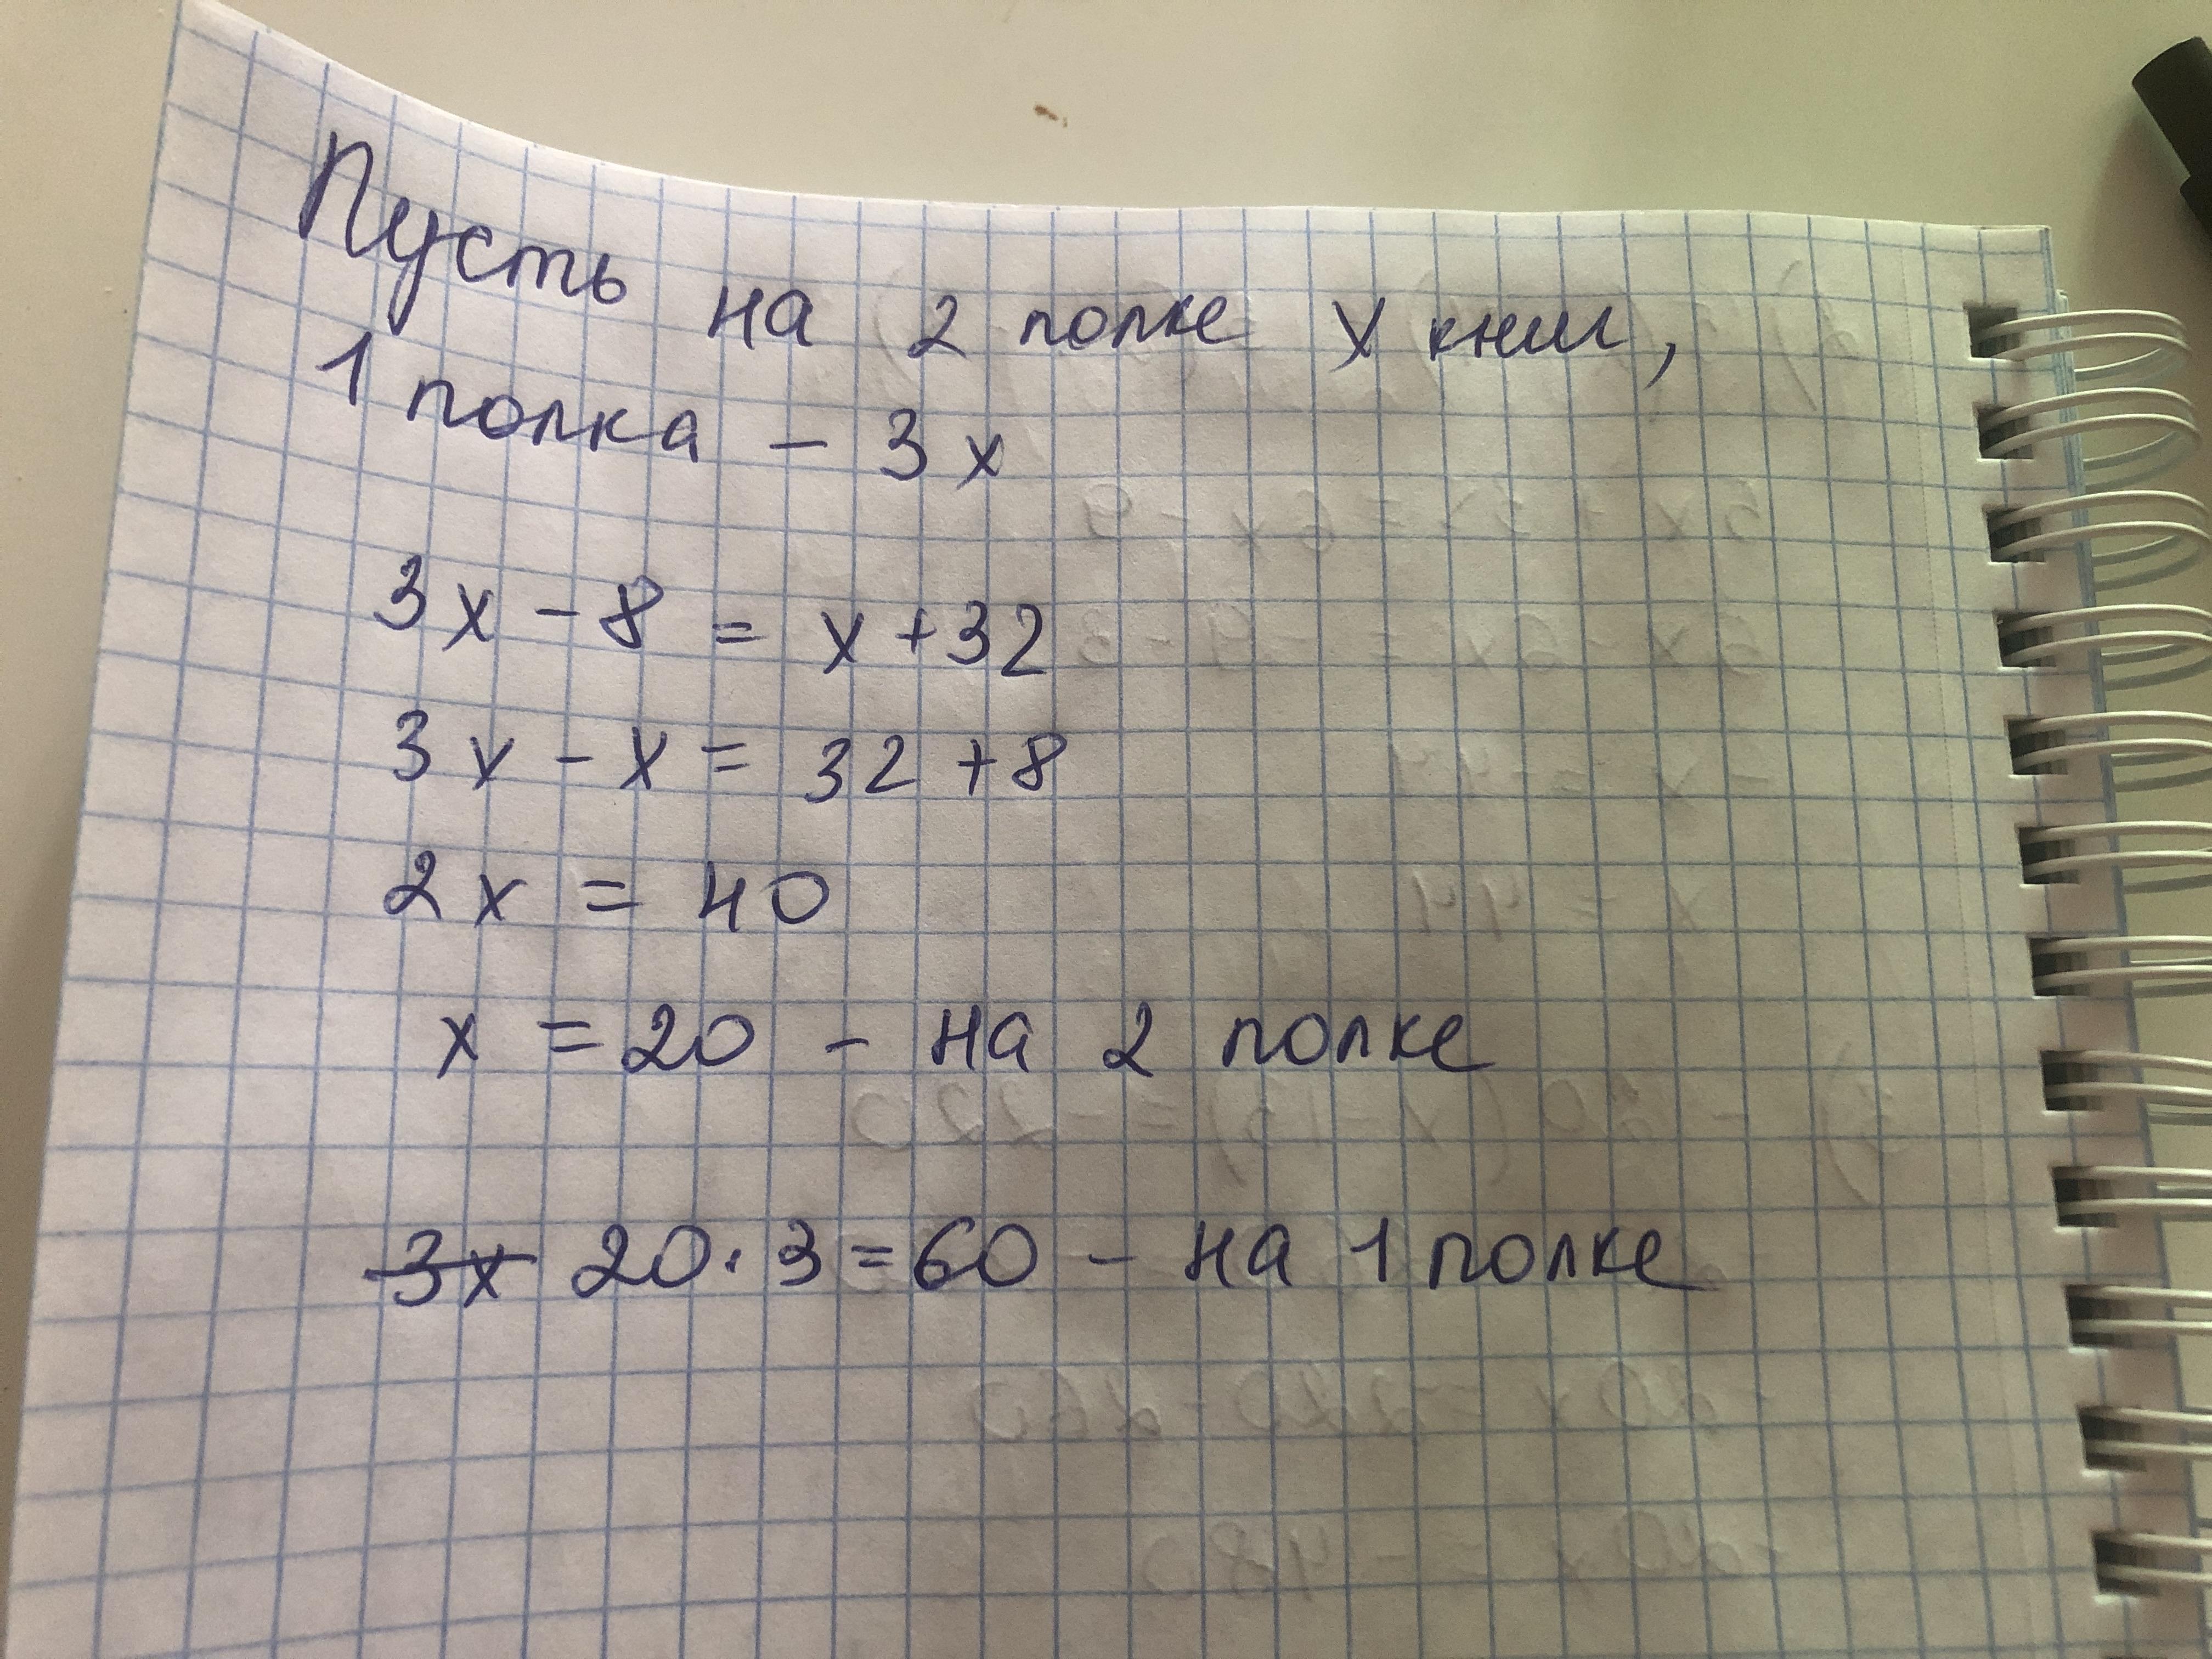 Пусть на 2 полке x книг,
1 полка - 3x
3x - 8 = x + 32
3x - x = 32 + 8
2x = 40
x = 20 - на 2 полке
3x 20 · 3 = 60 - на 1 полке